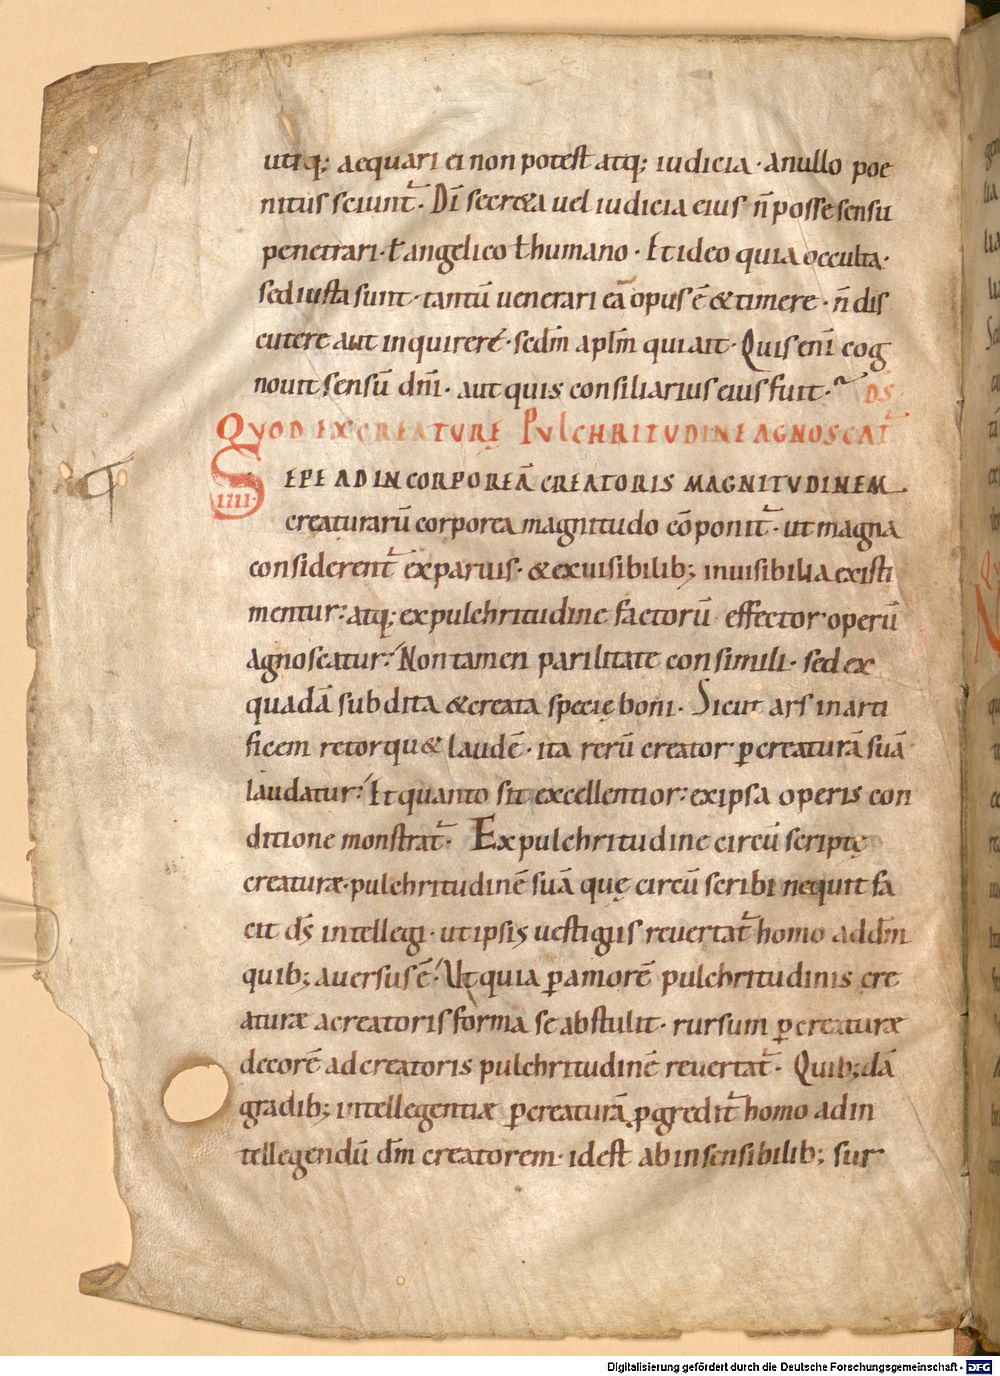 utiq; aequari ei non potest atq; iudicia · a nullo poe
nitus sciunt̃ · Dī secreta uel iudicia eius n̄ posse sensu
penetrari · ł angelico ł humano · Et ideo quia occulta ·
sed iusta sunt · tantū uenerari eā opus ē & timere · n̄ dis
cutere aut inquirere · sedm̄ aplm̄ qui ait · Quis enī cog
nouit sensū dn̄i · aut quis consiliarius eius fuit ·
QUOD EX CREATURĘ PULCHRITUDINE AGNOSCAT̃ DS̄
IIII·
SEPE AD INCORPOREĀ CREATORIS MAGNITUDINEM
creaturarū corporea magnitudo cōponit̃ · ut magna
considerent̃ ex paruis · & ex uisibilib; inuisibilia existi
mentur : atq; ex pulchritudine factorū effector operū
agnoscatur : Non tamen parilitate consimili · sed ex
quadā subdita & creata specie boni · Sicut ars in arti
ficem retorqu& laudē · ita rerū creator p̱ creaturā suā
laudatur : Et quanto sit excellentior : ex ipsa operis con
ditione monstrat̃ · Ex pulchritudine circū scriptę
creaturæ · pulchritudinē suā quę circū scribi nequit fa
cit ds̄ intellegi · ut ipsis uestigiis reuertat̃ homo ad dm̄
quib; auersus ē · Ut quia p̱ amorē pulchritudinis cre
aturæ a creatoris forma se abstulit · rursum p̱ creaturæ
decorē ad creatoris pulchritudinē reuertat̃ · Quib;dā
gradib; intellegentiæ p̱ creaturā p̱gredit̃ homo ad in
tellegendū dm̄ creatorem · id est ab insensibilib; sur
Digitalisierung gefördert durch die Deutsche Forschungsgemeinschaft - DFG